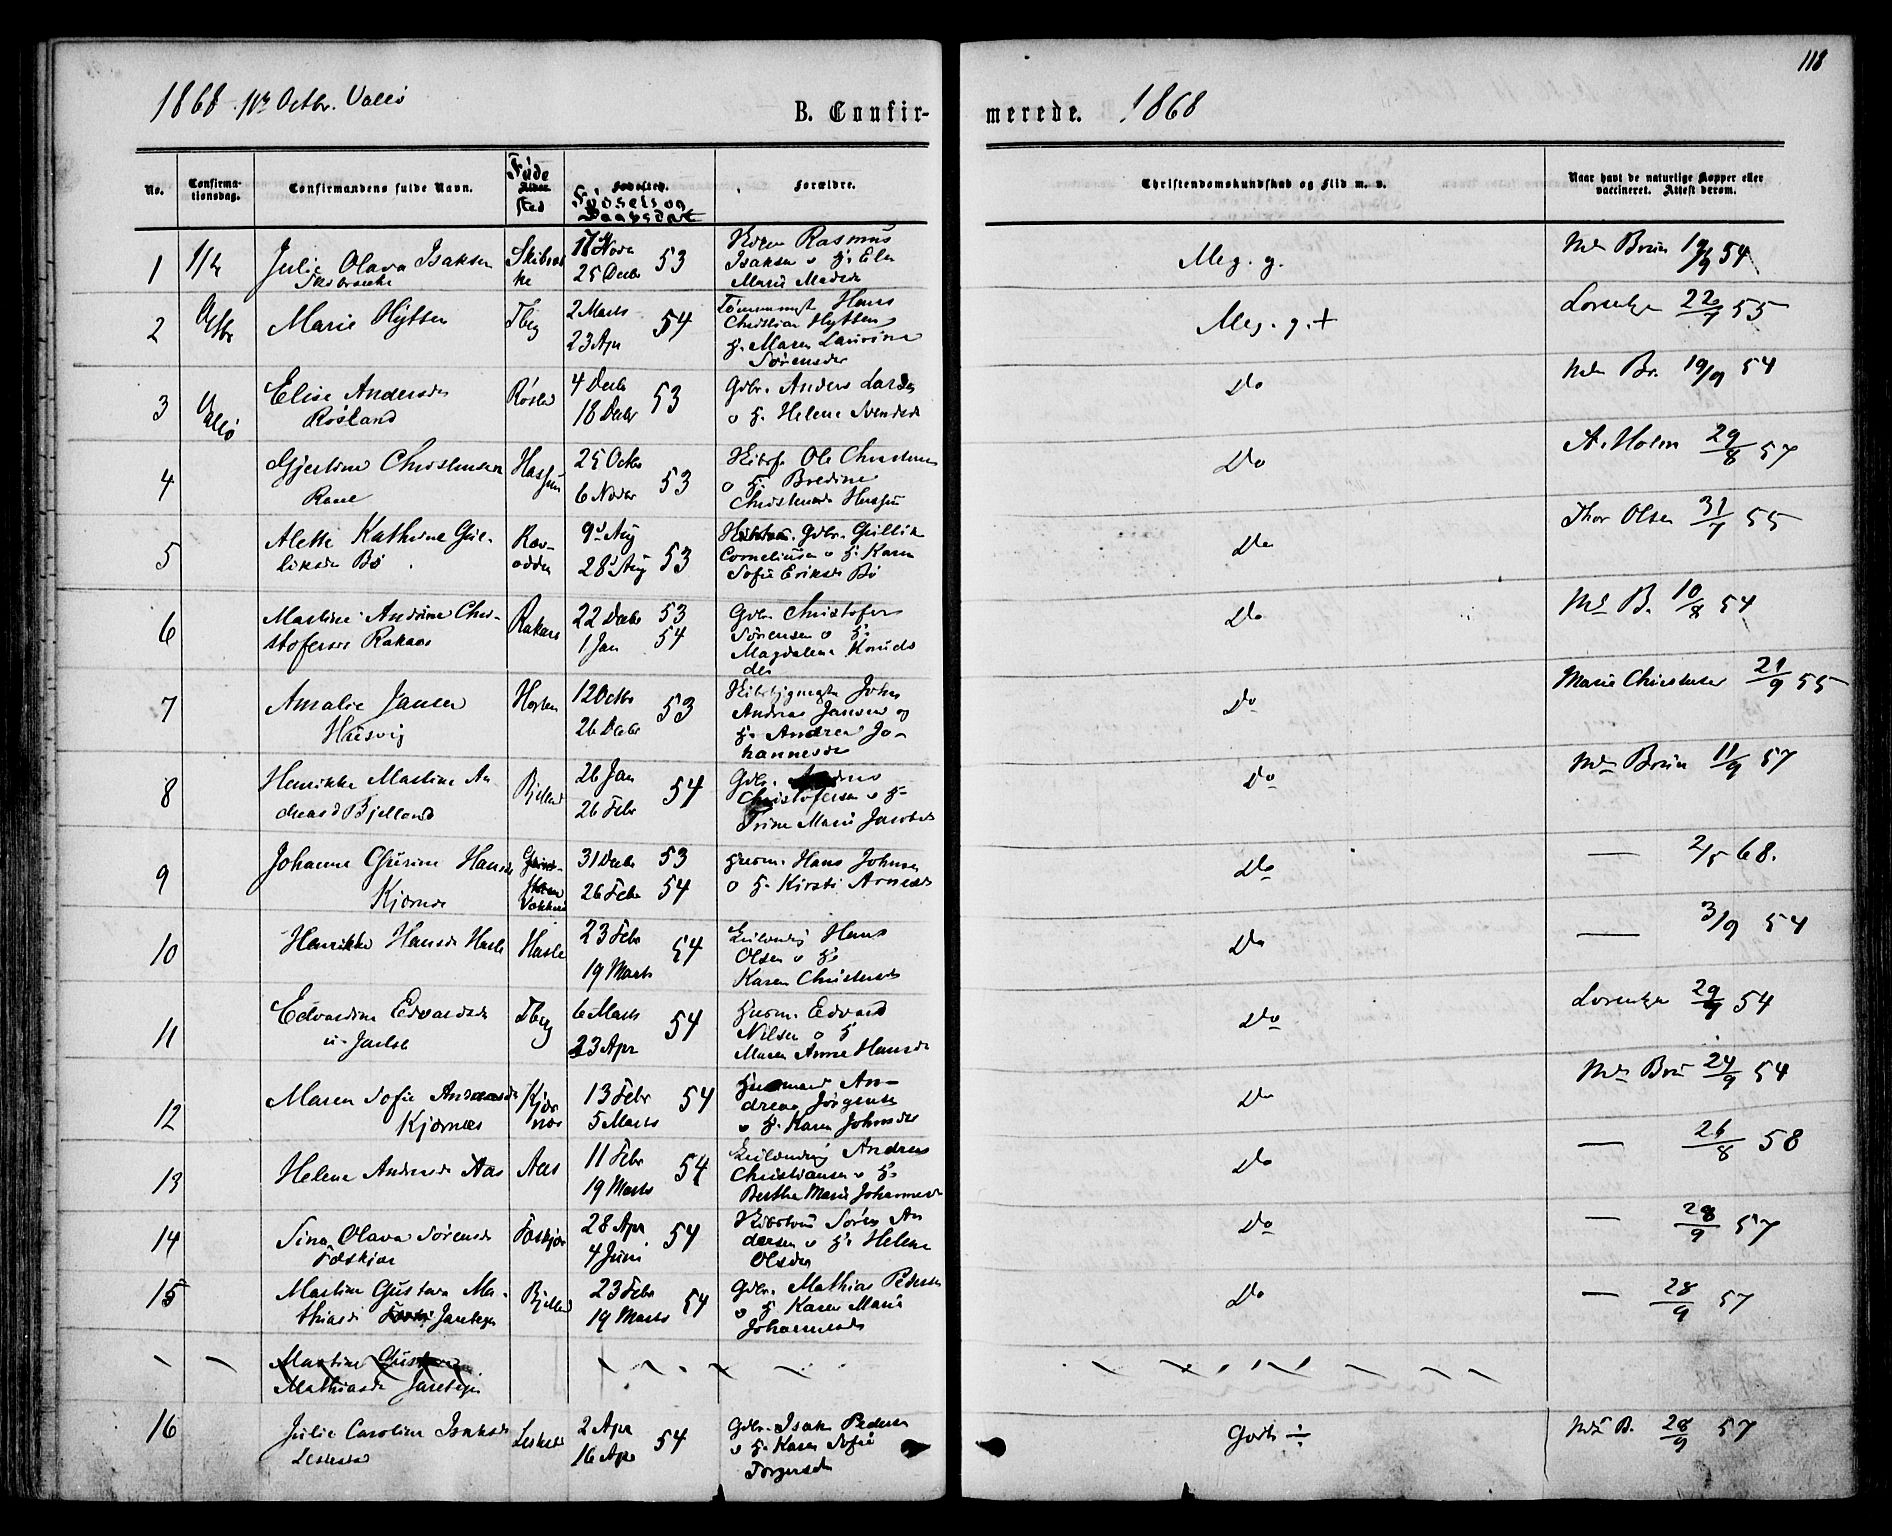 118
1868 11te Octbr. Vallø
B. Confirmerede. 1868
No.
Confirmationsdag.
Confirmandens fulde Navn.
Føde
sted
Fødested.
Fødsels og
Daabsdat
Forældre.
Christendomskundskab og Flid m. v.
Naar havt de naturlige Kopper eller
vaccineret. Attest derom.
1
Julie Olava Isaksen
17 Novbr
25 Decbr 53
Rasmus
Isaksen o h: Elen
Marie
Meg. g.
Brun 19/9 54
2
Marie Hytten
Tberg
2 Marts
23 Apr 54
Hans
Christian Hytten
h. Maren Laurine
Sørensdr
Meg. g. +
Lorentzen 22/9 55
3
Elise Andersdr
Røsland
4 Decbr
18 Decbr 53
Gdbr. Anders Larsen
o h. Helene Svendsdr
Do
Br. 19/9 54
4
Gjertine Christensen
Rane
25 Octbr
6 Novbr 53
Ole Christensen
o h: Bredine
Do
A. Holm 29/8 57
5
Alette Kathrine Gul-
liksdr Bø
Ræv-
odden
9d Aug
28d Aug 53
Gdbr. Gullik
Corneliusen o h: Karen
Sofie Eriksdr Bø
Do
Thor Olsen 31/7 55
6
Martine Andrine Chri-
stofersdr Rakaas
Rakaas
22 Decbr 53
1 Jan 54
Gdbr Christofer
Sørensen o h:
Magdalene Knuds
dr
Do
Mdm B. 10/8 54
7
Amalie Jansen
Husvig
Horten
12 Octbr
26 Decbr 53
John
Andreas Jansen og
h: Andrea Jo-
hannesdr
Do
Marie Christensen 21/9 55
8
Henrikke Martine An
dreasd Bjelland
Bjelland
26 Jan
26 Febr 54
Gdbr.
Christofersen o h:
Trine Marie Jacobsdr
Do
Mdm Brun 11/9 57
9
Johanne Gusine Hansdr
Kjærnæs
31 Decbr 53
26 Febr 54
Husm. Hans Johnsen
o h. Kirsti Arnesdr
Do
— 2/5 68.
10
Henrikke Hansdr Hasle
Hasle
23 Febr
19 Marts 54
Hans
Olsen o h:
Karen Christensdr
Do
— 3/9 54
11
Edvardine Edvardsdr
u. Jarlsb
Tberg
6 Marts
23 Apr 54
Husm. Edvard
Nilsen o h
Maren Anne Hansdr
Do
Lorentzen 29/9 54
12
Maren Sofie Andreasdr
Kjærnæs
Kjær
næs
13 Febr
5 Marts 54
Husmand An-
dreas Jørgensen
o h: Karen Johnsdr
Do
Mdm Brun 24/9 54
13
Helene Andersdr Aas
Aas
11 Febr
19 Marts 54
Anders
Christiansen o h:
Berthe Marie Johannesdr
Do
— 26/8 58
14
Sina Olava Sørensdr
Foskjær
28 Apr
4 Juni 54
Søren An
dersen o h: Helene
Olsdr
Do
— 28/9 57
15
Martine Gustava Ma-
thiasdr Jarebgn
Bjelland
23 Febr
19 Marts 54
Gdbr. Mathias Pedersen
o h Karen Marie
Johannesdr
Do
— 28/9 57
Martine Gustava
Mathiasdr
16
Julie Caroline Isaksdr
2 Apr
16 Apr 54
Gdbr. Isak Pedersen
o h. Karen Sofie
Torgersdr
Godt ÷
Mdm B. 28/9 57